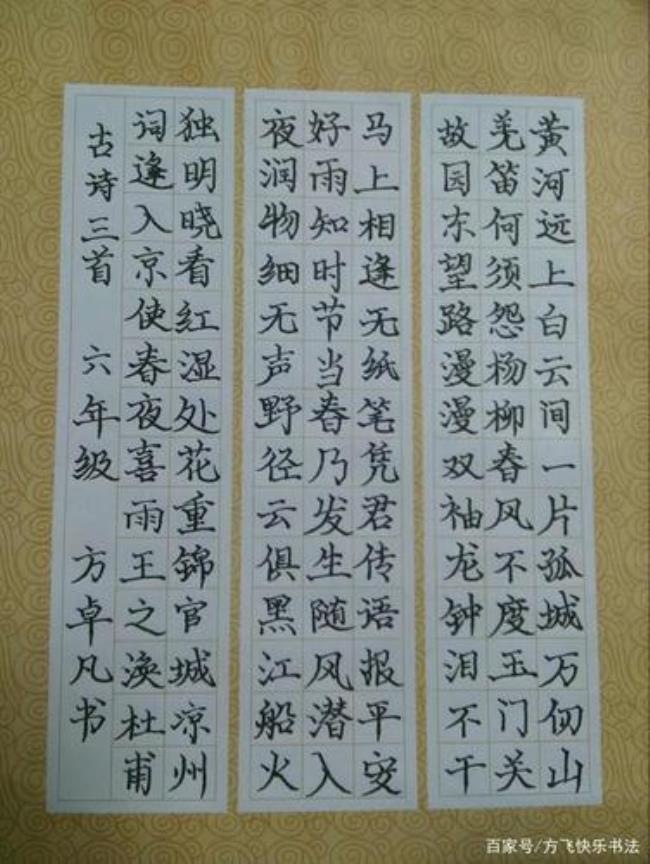 黄河远上白云间一片孤城万仞山
羌笛何须怨杨柳春风不度玉门关
故园东望路漫漫双袖龙钟泪不干
马上相逢无纸笔凭君传语报平安
好雨知时节当春乃发生随风潜入
夜润物细无声野径云俱黑江船火
独明晓看红湿处花重锦官城凉州
词逢入京使春夜喜雨王之涣杜甫
古诗三首 六年级 方卓凡书
百家号/方飞快乐书法